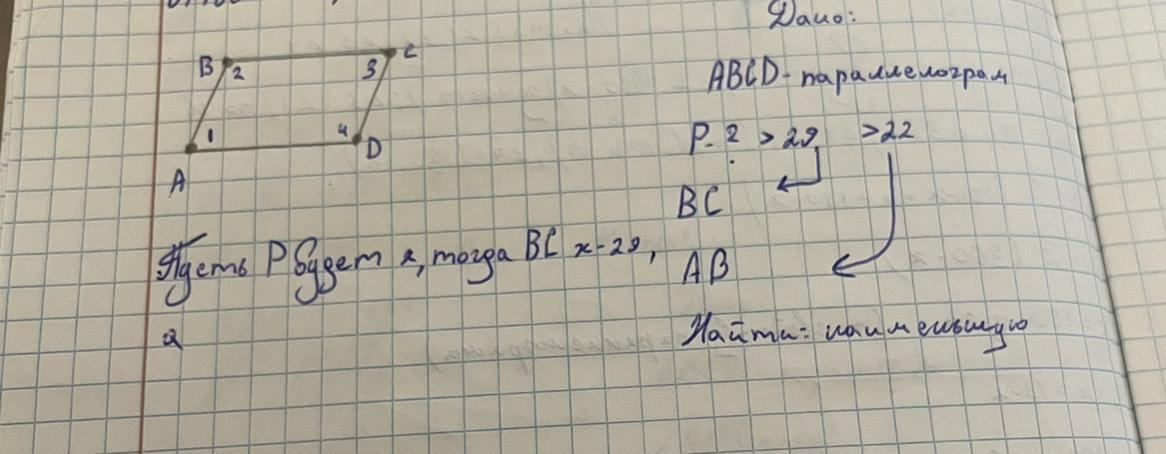 Дано:
B 2 3 C
ABCD - параллелограм
1 4
A D
P - ? > 29 > 22
BC
Пусть P будет x, тогда BC x - 29,
AB
а
Найти: наименьшую